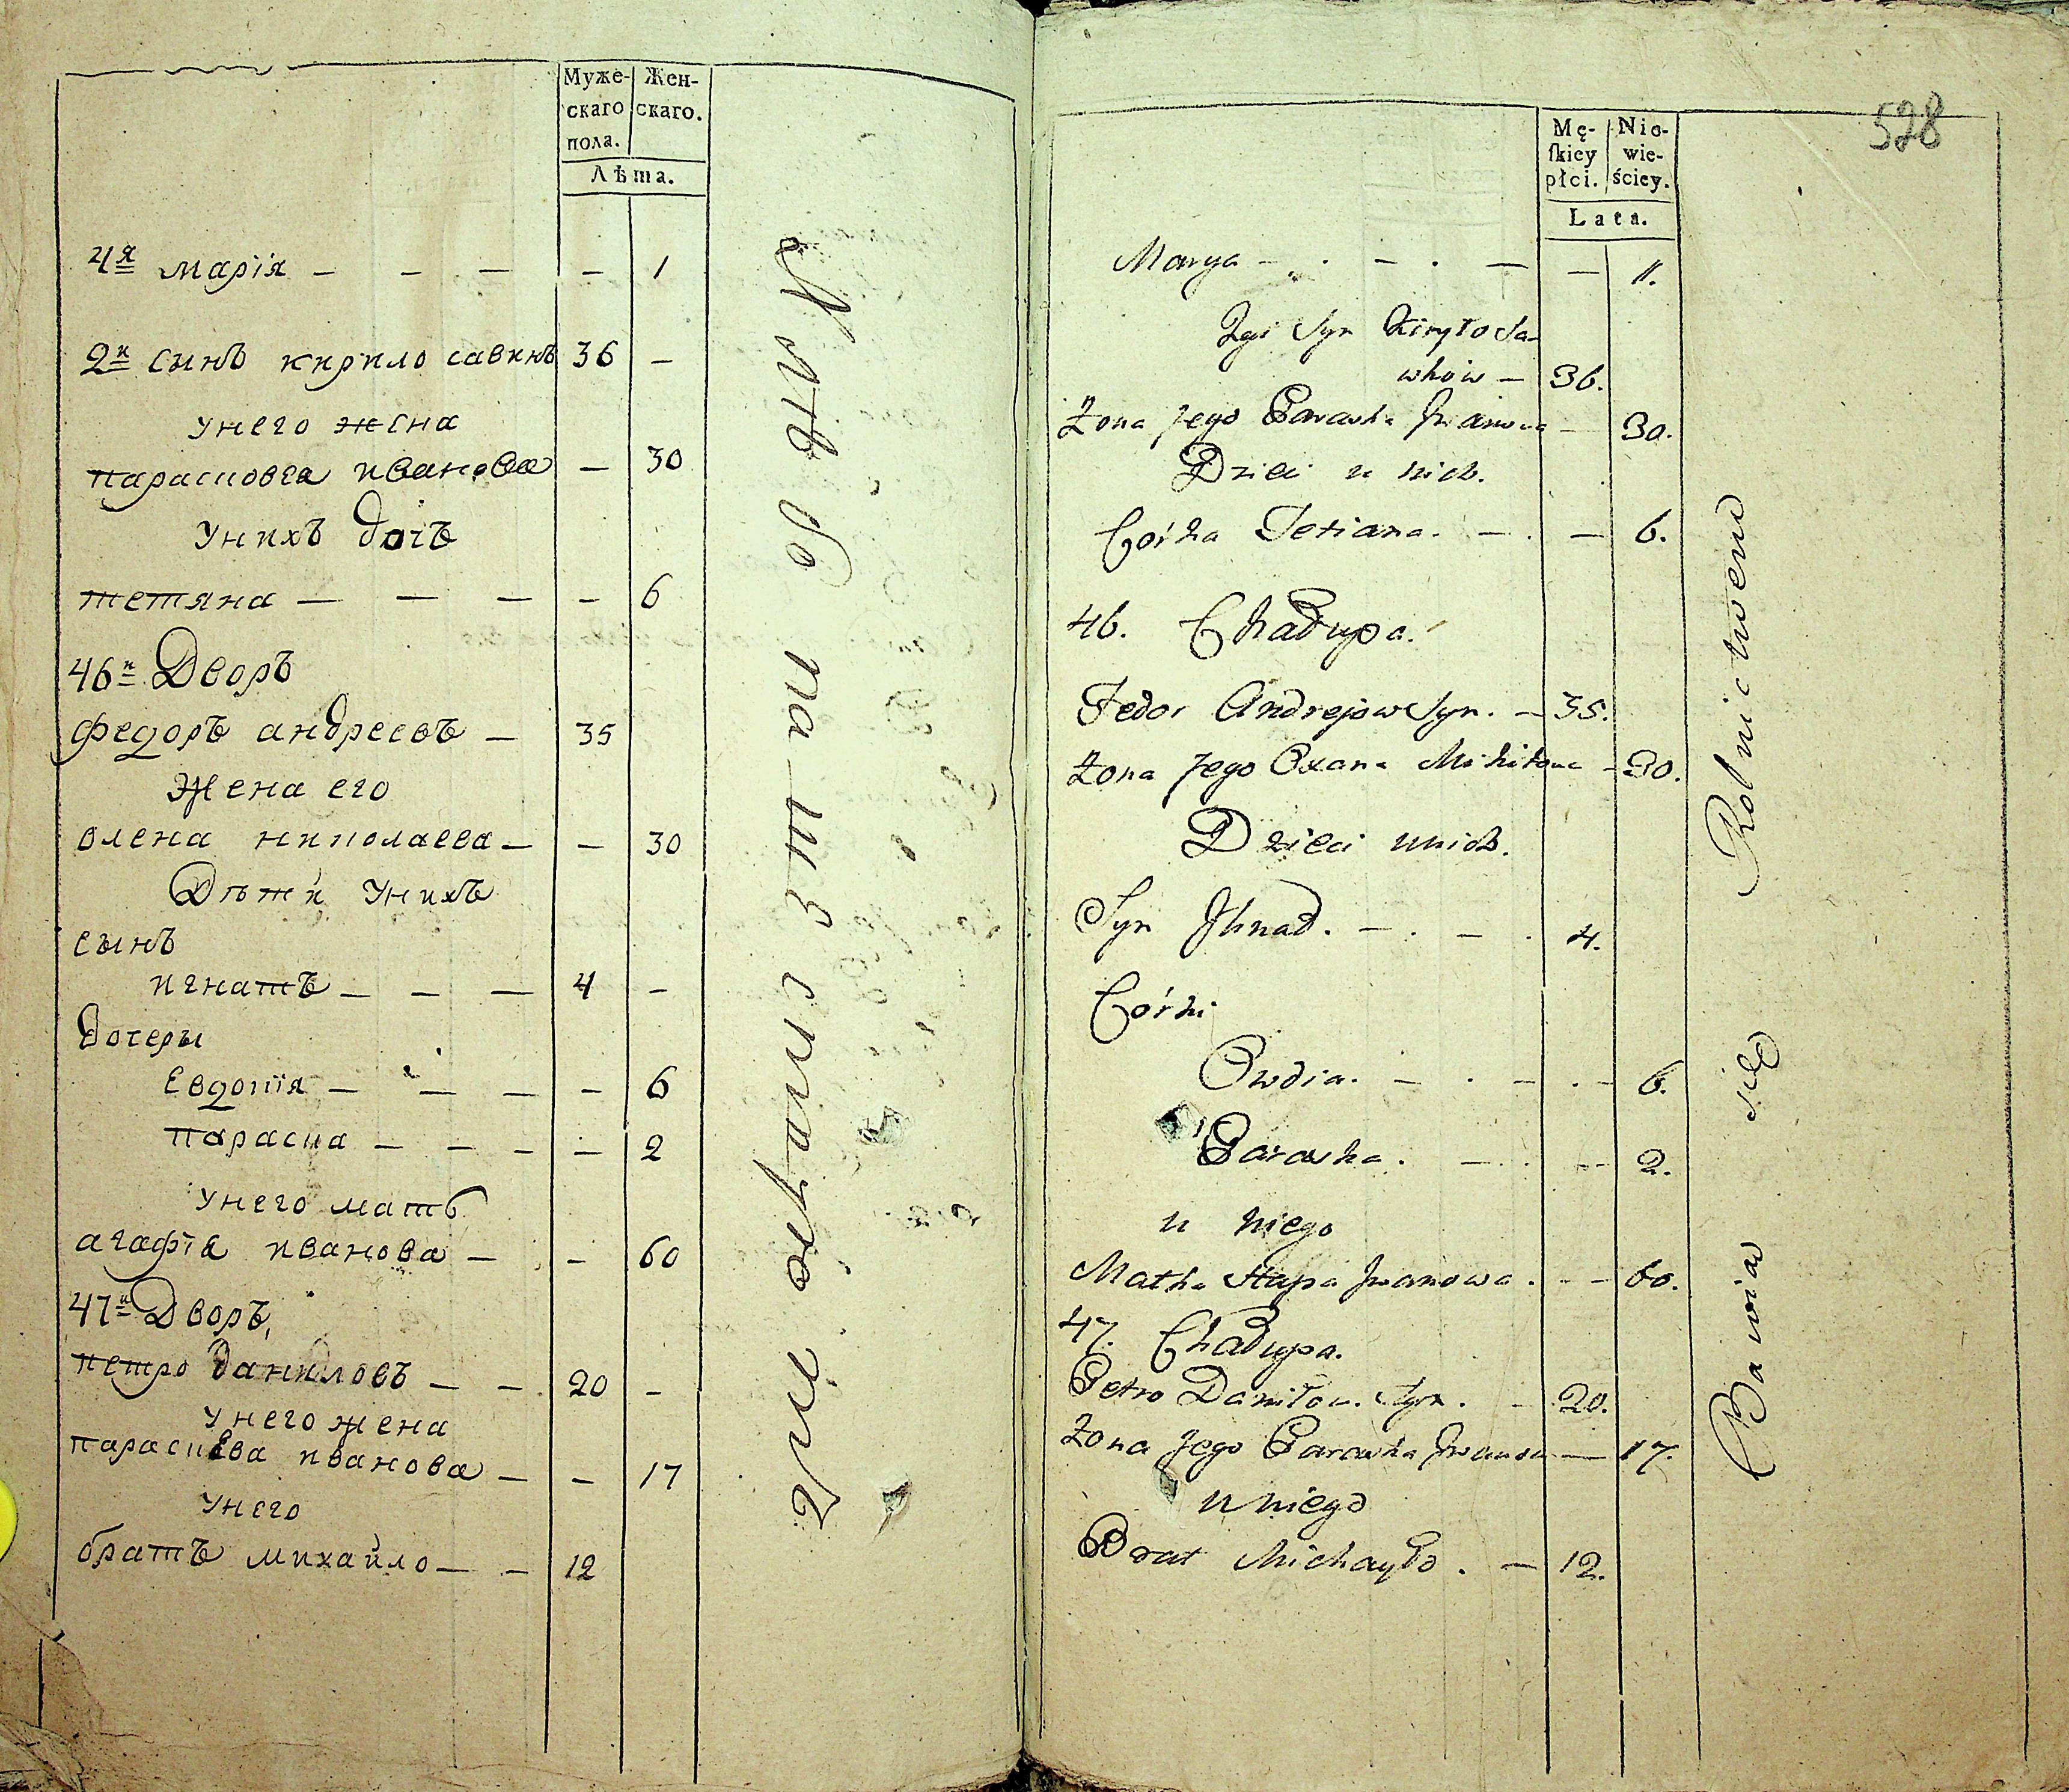 Муже-
скаго
пола.
Жен-
скаго.
Лѣта.
4я марія — — — — 1
2й сынъ кирило савинъ 36 —
унего жена
парасковея иванова — 30
унихъ дочь
тетяна — — — — 6
46й Дворъ
федоръ андреевъ — 35
жена его
олена николаева — — 30
Дѣти унихъ
сынъ
игнатъ — — — 4 —
дочеры
Евдокія — — — — 6
параска — — — — 2
унего мать
агафія иванова — — 60
47й Дворъ
петро даниловъ — — 20 —
унего жена
параскева иванова — — 17
унего
братъ михайло — — 12
528
Mę-
skiey
płci.
Nie-
wie-
ściey.
Lata.
Marya — . — . — — 1.
2gi Syn Kiryło Sa-
wkow — 36.
Żona Jego Paraska Iwanowa — 30.
Dzieci u nich.
Córka Tetiana. — . — 6.
46. Chałupa.
Fedor Andrejow Syn. — 35.
Żona Jego Oxana Mikitowa — 30.
Dzieci u nich.
Syn Ihnad. — . — . 4.
Córki
Owdia. — . — . — 6.
Paraska. — . — 2.
u niego
Matka Hapa Iwanowa . — — 60.
47. Chałupa.
Petro Daniłow. Syn. — 20.
Żona Jego Paraska Iwanowa — 17.
u niego
Brat Michayło . — 12.
Bawią się Rolnictwem